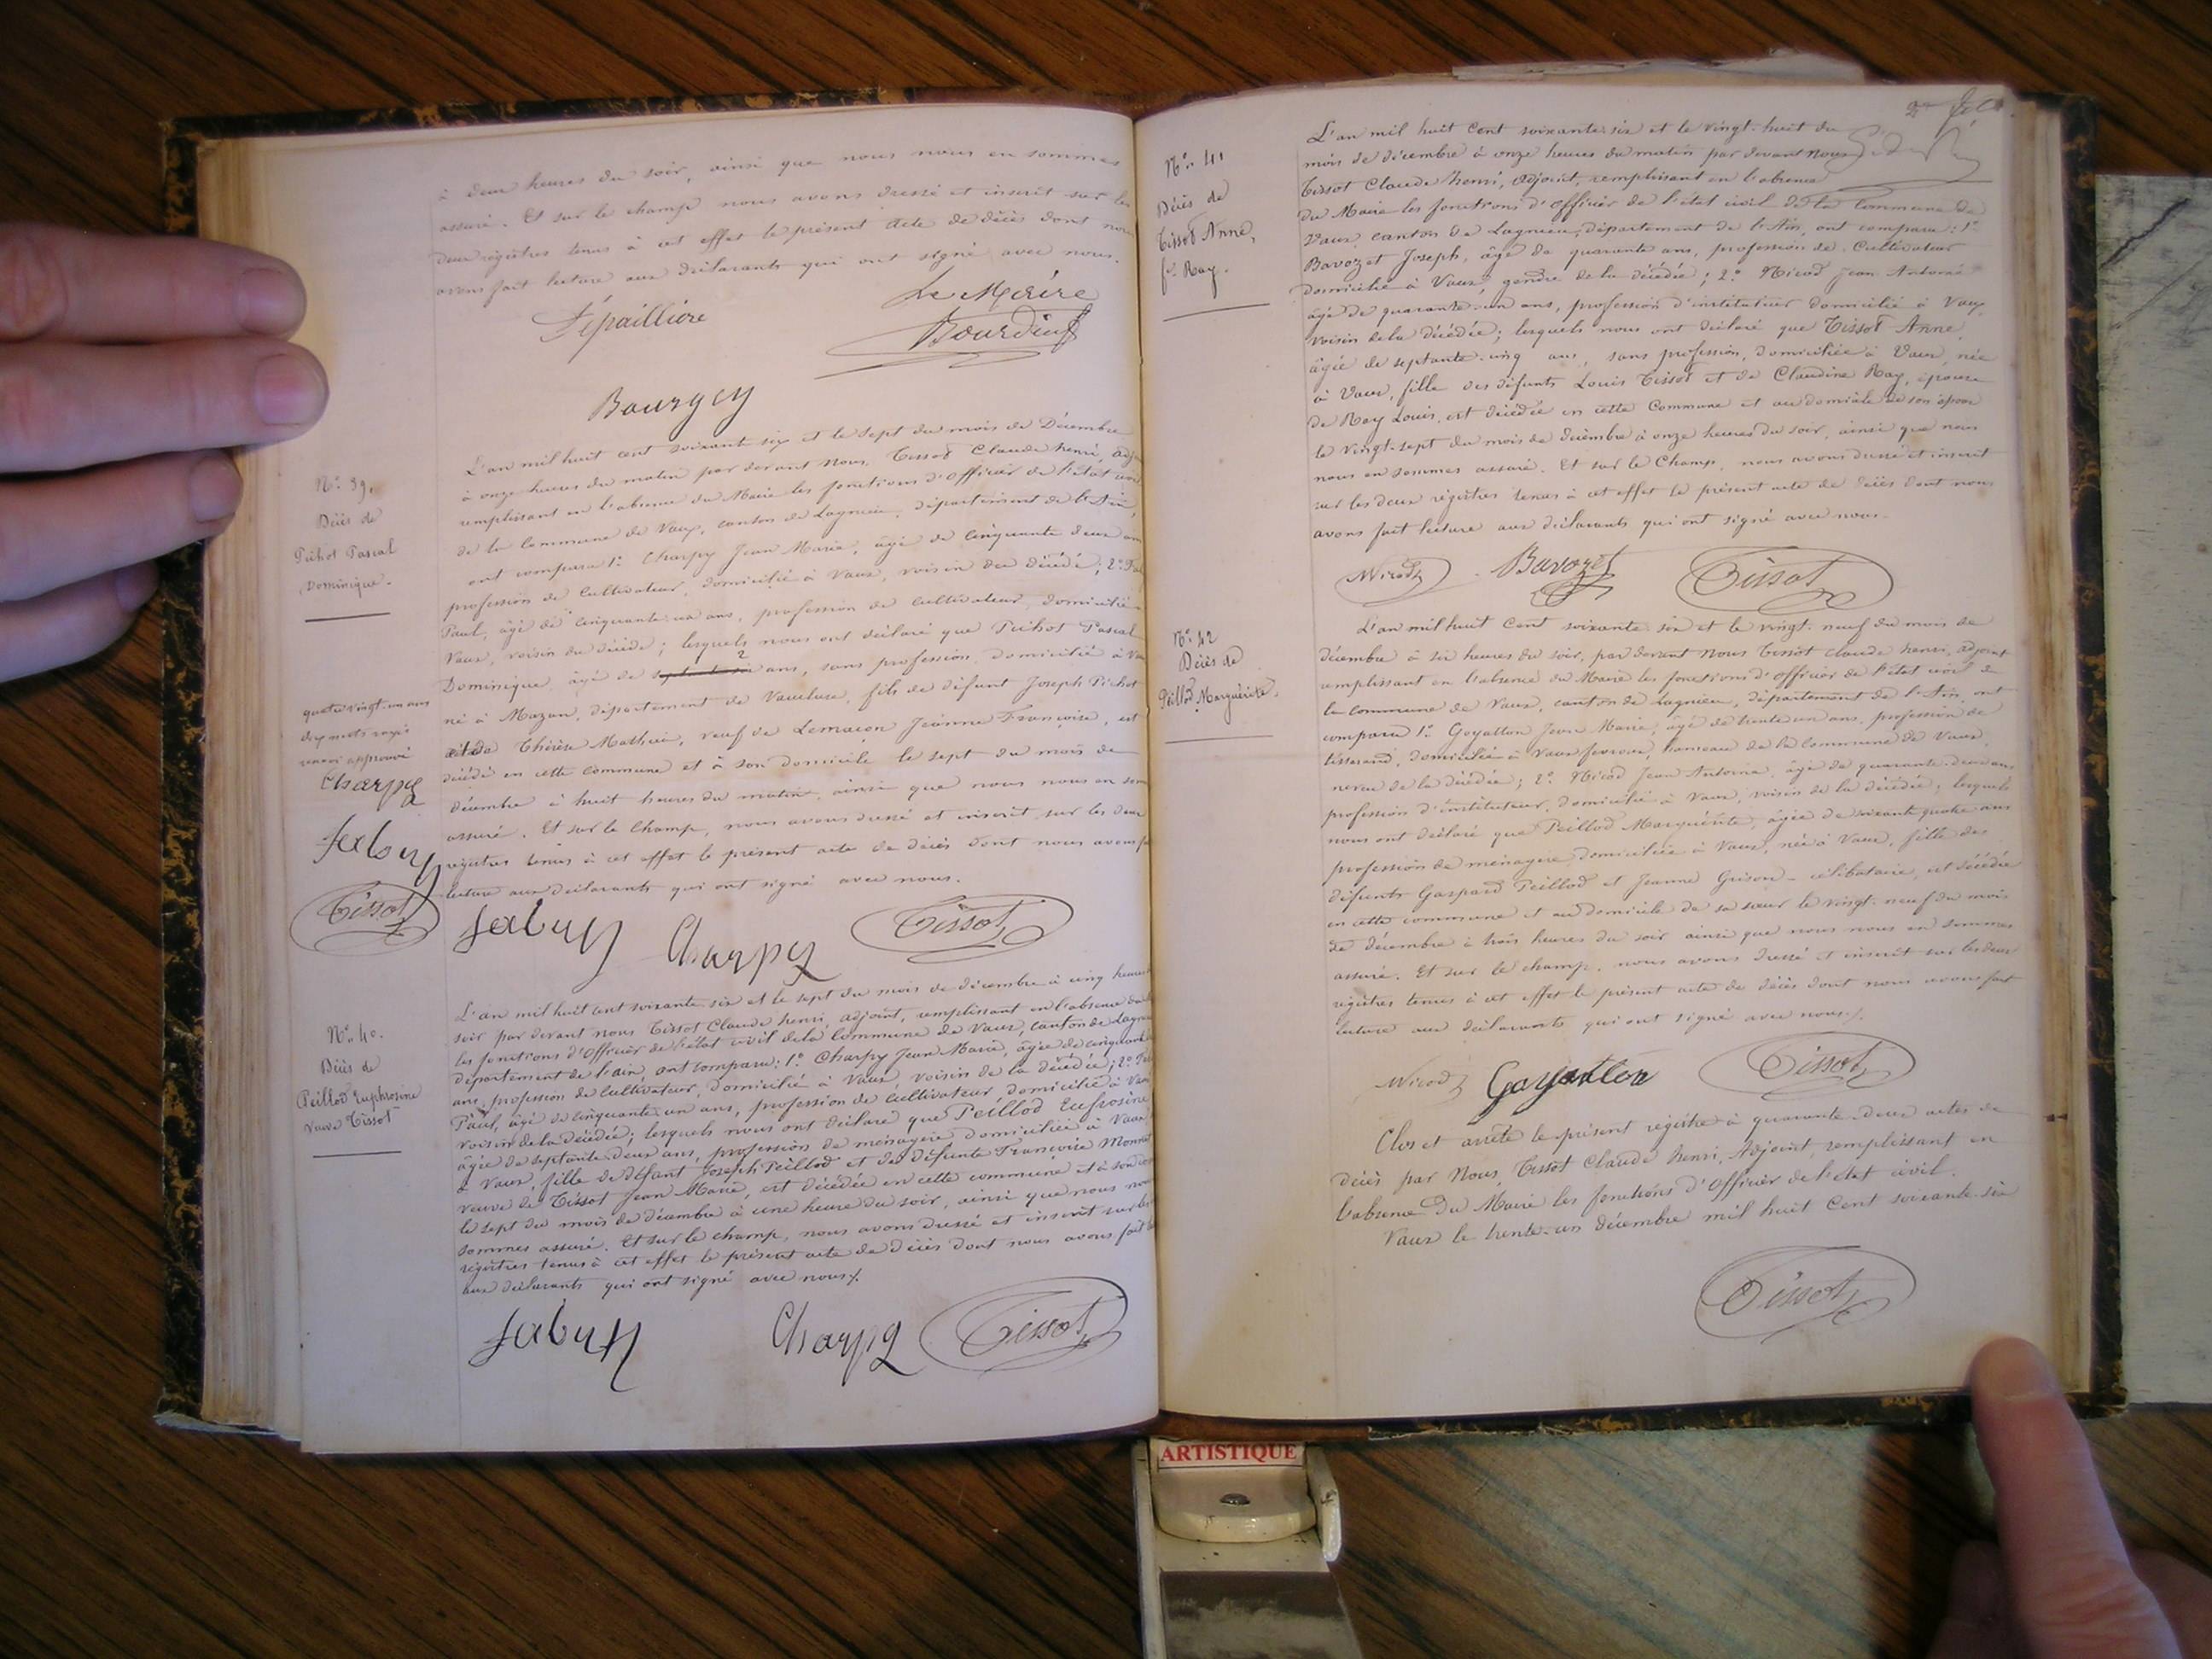 à deux heures du soir, ainsi que nous nous en sommes
assuré. Et sur le champ nous avons dressé et inscrit sur les
deux registres tenus à cet effet le présent acte de décès dont nous
avons fait lecture aux déclarants qui ont signé avec nous.
Le Maire
Bourgey
N° 39.
Décès de
Pichot Pascal
Dominique.
L'an mil huit cent soixante six et le sept du mois de Décembre
à onze heures du matin par devant Nous, Tissot Claude henri, adj
remplissant en l'absence du Maire les fonctions d'Officier de l'état civil
de la Commune de Vaux, canton de Lagnieu, département de l'Ain,
ont comparu 1° Charpy Jean Marie, âgé de cinquante deux ans
profession de Cultivateur, domicilié à Vaux, voisin du décédé; 2°
Paul, âgé de cinquante un ans, profession de cultivateur, domicilié à
Vaux, voisin du décédé; lesquels nous ont déclaré que Pichot Pascal
Dominique, âgé de ans, sans profession, domicilié à Vaux
né à Mazan, département de Vaucluse, fils de défunt Joseph Pichot
et de Thérèse Mathieu, veuf de Lemacon Jeanne Françoise, est
décédé en cette commune et à son domicile le sept du mois de
décembre à huit heures du matin, ainsi que nous nous en som
assuré. Et sur le Champ, nous avons dressé et inscrit sur les deux
registres tenus à cet effet le présent acte de décès dont nous avons f
lecture aux déclarants qui ont signé avec nous.
quatre vingt-un ans
Charpy
Tissot
Charpy
Tissot
N° 40.
Décès de
Peillod Euphrosine
veuve Tissot
L'an mil huit cent soixante six et le sept du mois de décembre à cinq heures
soir par devant nous Tissot Claude henri, adjoint, remplissant en l'absence du
les fonctions d'Officier de l'état civil de la Commune de Vaux, canton de Lagnieu
département de l'ain, ont comparu: 1° Charpy Jean Marie, âgé de cinquante
ans, profession de cultivateur, domicilié à Vaux, voisin de la décédée; 2°
Paul, âgé de cinquante un ans, profession de cultivateur domicilié à Vaux
voisin de la décédée; lesquels nous ont déclaré que Peillod Eufrosine
âgée de septante deux ans, profession de ménagère domiciliée à Vaux
à Vaux, fille de défunt Joseph Peillod et de défunte Françoise
veuve de Tissot Jean Marie, est décédée en cette commune et à son
le sept du mois de décembre à une heure du soir, ainsi que nous
sommes assuré. Et sur le champ, nous avons dressé et inscrit sur les
registres tenus à cet effet le présent acte de décès dont nous avons fait
aux déclarants qui ont signé avec nous.
Charpy
Tissot
N° 41
Décès de
Tissot Anne,
fe Ray.
L'an mil huit Cent soixante six et le vingt-huit du
mois de décembre à onze heures du matin par devant nous
Tissot Claude henri, Adjoint, remplissant en l'absence
du Maire les fonctions d'Officier de l'état civil de la Commune de
Vaux, canton de Lagnieu, département de l'Ain, ont comparu: 1°
Bavozet Joseph, âgé de quarante ans, profession de Cultivateur
domicilié à Vaux, gendre de la décédée; 2° Nicod Jean Antoine
âgé de quarante-un ans, profession d'instituteur domicilié à Vaux,
voisin de la décédée; lesquels nous ont déclaré que Tissot Anne,
âgée de septante-cinq ans, sans profession, domiciliée à Vaux, née
à Vaux, fille des défunts Louis Tissot et de Claudine Ray, épouse
de Ray Louis, est décédée en cette Commune et au domicile de son époux
le vingt-sept du mois de décembre à onze heures du soir, ainsi que nous
nous en sommes assuré. Et sur le Champ, nous avons dressé et inscrit
sur les deux registres tenus à cet effet le présent acte de décès dont nous
avons fait lecture aux déclarants qui ont signé avec nous.
Nicod Bavozet Tissot
N° 42
Décès de
Peillod Marguérite.
L'an mil huit Cent soixante six et le vingt-neuf du mois de
décembre à six heures du soir, par devant Nous Tissot Claude henri, adjoint
remplissant en l'absence du Maire les fonctions d'Officier de l'état civil de
la commune de Vaux, canton de Lagnieu, département de l'Ain, ont
comparu 1° Goyatton Jean Marie, âgé de trente un ans, profession de
tisserand, domicilié à Vaux fevroux, hameau de la Commune de Vaux,
neveu de la décédée; 2° Nicod Jean Antoine, âgé de quarante-deux ans
profession d'instituteur, domicilié à Vaux, voisin de la décédée; lesquels
nous ont déclaré que Peillod Marguérite, âgée de soixante quatre ans
profession de ménagère, domiciliée à Vaux, née à Vaux, fille des
défunts Gaspard Peillod et Jeanne Grison, célibataire, est décédée
en cette commune et au domicile de sa sœur le vingt-neuf du mois
de décembre à trois heures du soir ainsi que nous nous en sommes
assuré. Et sur le champ, nous avons dressé et inscrit sur les deux
registres tenus à cet effet le présent acte de décès dont nous avons fait
lecture aux déclarants qui ont signé avec nous.
Nicod Goyatton Tissot
Clos et arrêté le présent registre à quarante-deux actes de
décès par Nous, Tissot Claude henri, Adjoint, remplissant en
l'absence du Maire les fonctions d'Officier de l'état civil.
Vaux le trente-un décembre mil huit Cent soixante-six
Tissot
ARTISTIQUE